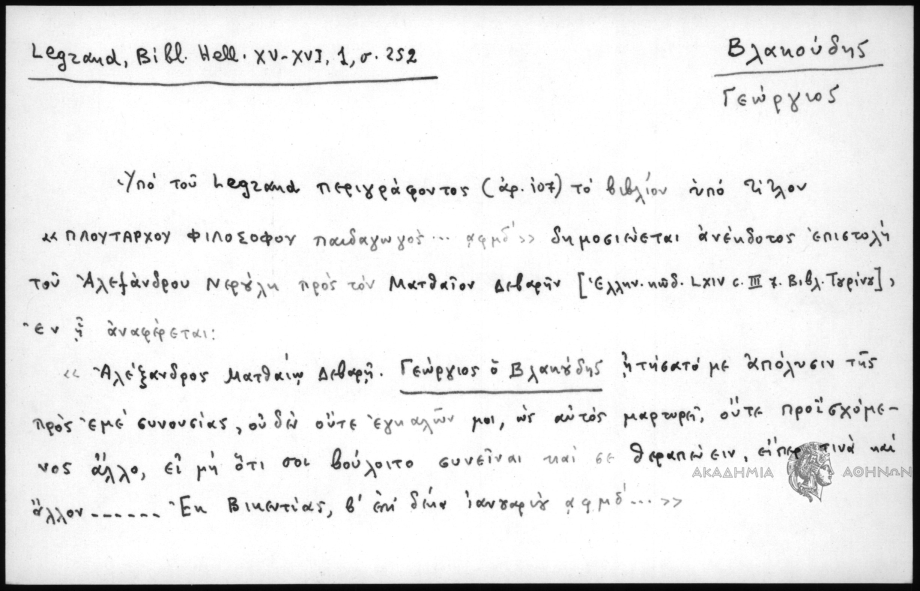 Legrand, Bibl. Hell. XV-XVI, 1, σ. 252
Βλακούδης
Γεώργιος
Ὑπό τοῦ Legrand περιγράφοντος (ἀρ. 107) τό βιβλίον ὑπό τίτλον
«ΠΛΟΥΤΑΡΧΟΥ ΦΙΛΟΣΟΦΟΥ παιδαγωγός... ͵αφμδ'» δημοσιεύεται ἀνέκδοτος ἐπιστολή
τοῦ Ἀλεξάνδρου Νερούλη πρός τόν Ματθαῖον Δεβαρῆν [Ἑλλην. κώδ. LXIV c. III 7. Βιβλ. Τυρίνου],
Ἐν ᾗ ἀναφέρεται:
« Ἀλέξανδρος Ματθαίῳ Δεβαρῇ. Γεώργιος ὁ Βλακούδης ᾐτήσατό με ἀπόλυσιν τῆς
πρός ἐμέ συνουσίας, οὐδέν οὔτε ἐγκαλῶν μοι, ὡς αὐτός μαρτυρεῖ, οὔτε προϊσχόμε-
νος ἄλλο, εἰ μή ὅτι σοι βούλοιτο συνεῖναι καί σε θεραπεύειν, εἴπερ τινά καί
ἄλλον ------ Ἐκ Βικεντίας, β' ἐπί δέκα ἰανουαρίου ͵αφμδ'...»
ΑΚΑΔΗΜΙΑ ΑΘΗΝΩΝ